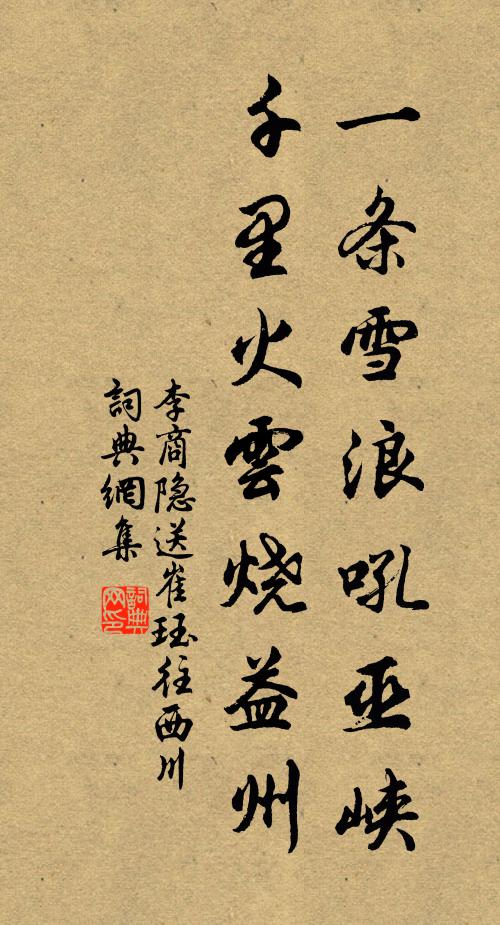 一条雪浪吼巫峡
千里火雲烧益州
李商隐送崔珏往西川
詞典網集
詞典网印